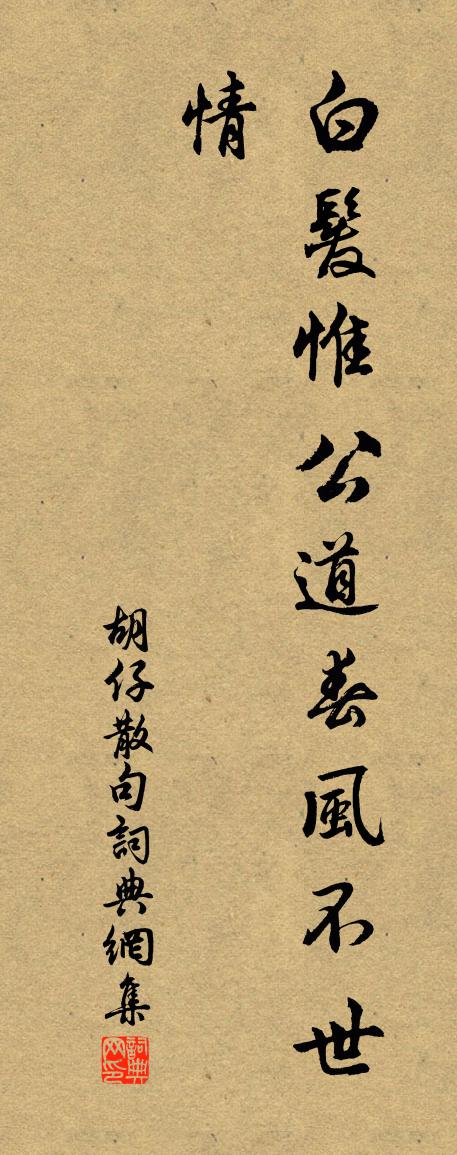 白髮惟公道春風不世
情
胡仔散句詞典網集
詞典网印